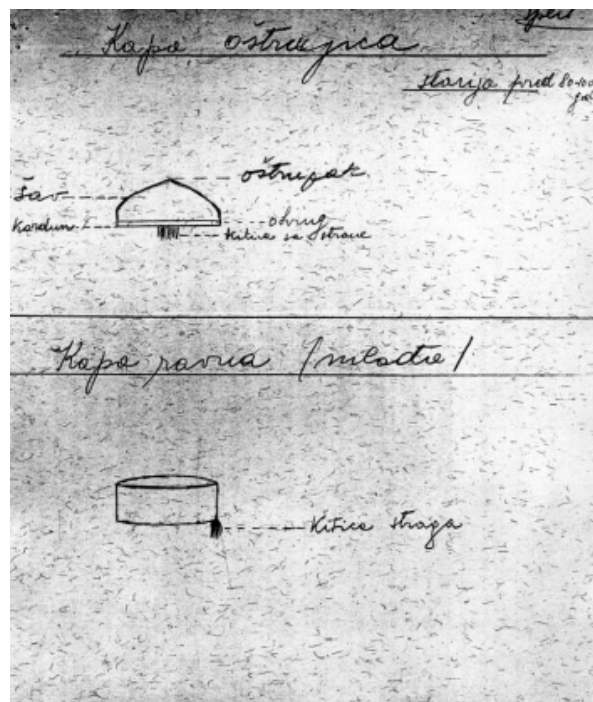 Kapa oštrujica
starija pred 80-100 god
šav
oštrujak
kordun
obrug
kitica sa strane
Kapa ravna /mlađe/
Kitica straga